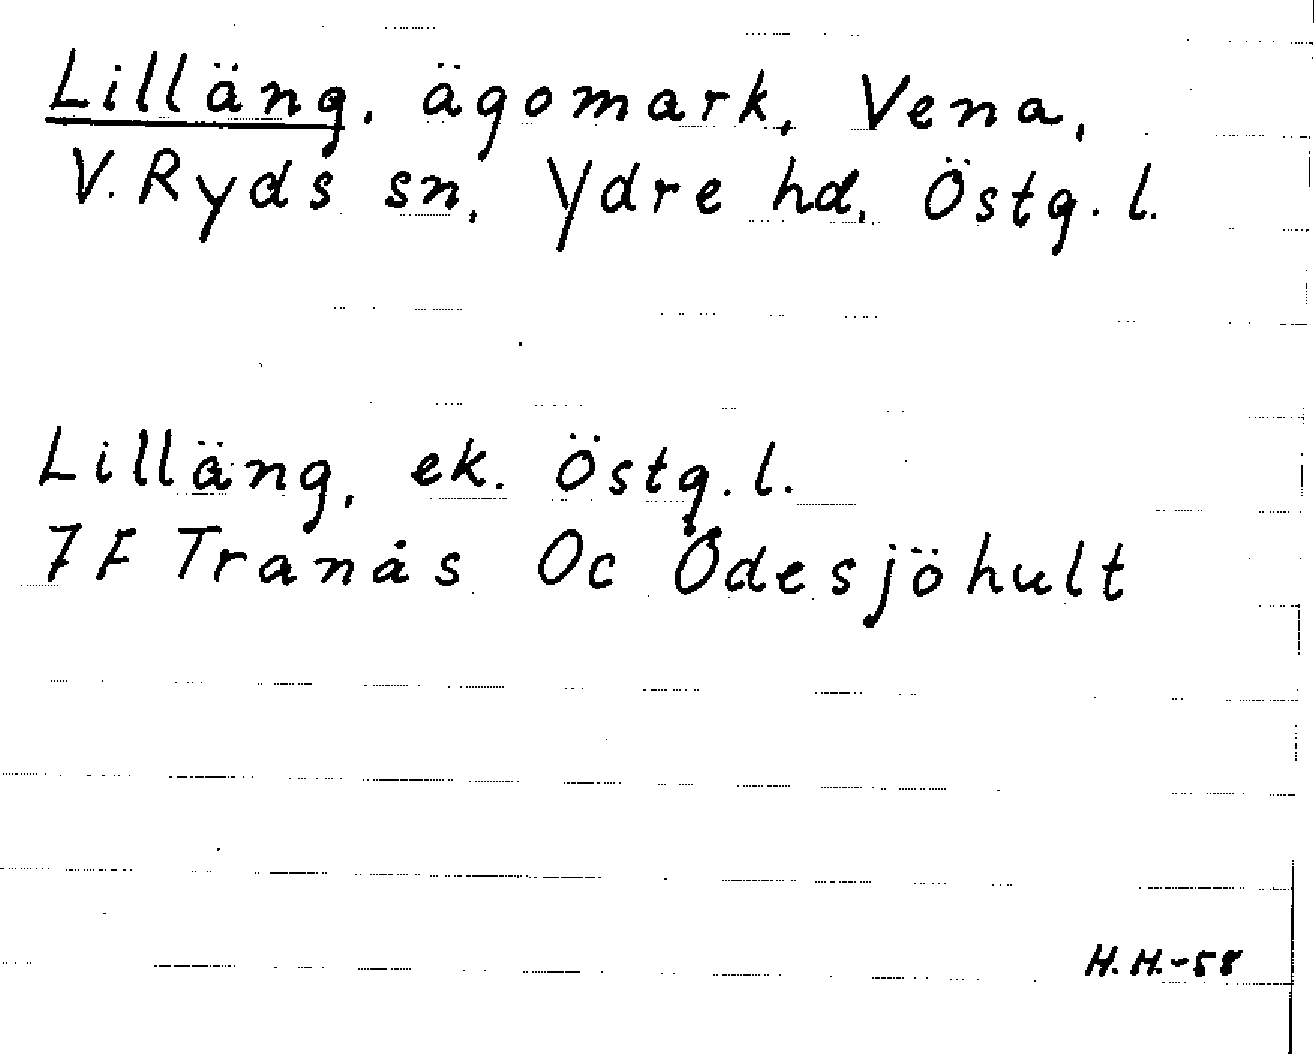 Lilläng, ägomark, Vena,
V. Ryds sn, Ydre hd, Östg. l.
Lilläng, ek. Östg. l.
7F Tranås Oc Ödesjöhult
H. H. -58